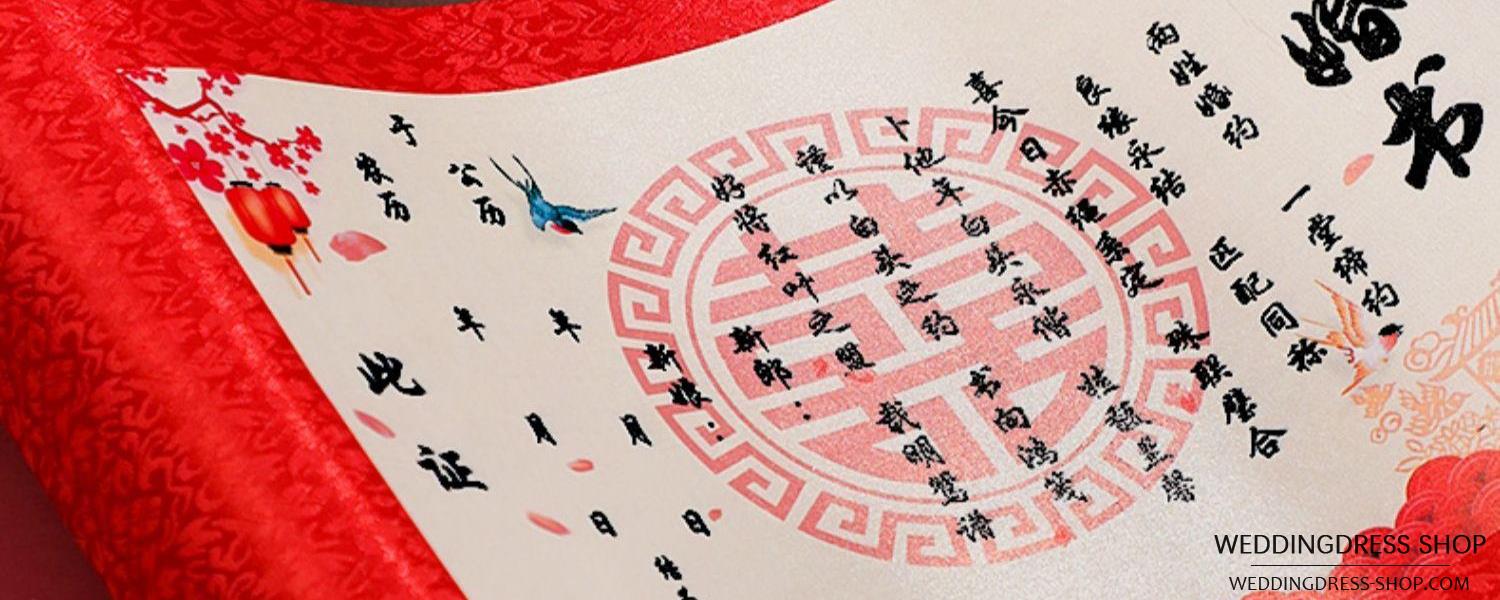 婚书
两姓婚约 一堂缔约
良缘永结 匹配同称
喜今日赤绳系定 珠联璧合
卜他年白头永偕 桂馥兰馨
谨以白头之约 书向鸿笺
好将红叶之盟 载明鸳谱
新郎:
新娘:
于
公历 年 月 日
农历 年 月 日
结
此证
WEDDINGDRESS SHOP
WEDDINGDRESS-SHOP.COM